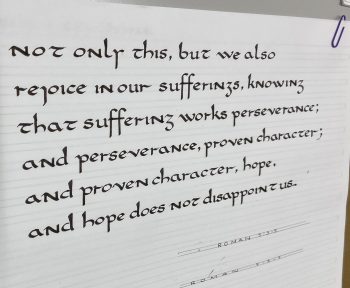 not only this, but we also
rejoice in our sufferings, knowing
that suffering works perseverance;
and perseverance, proven character;
and proven character, hope.
and hope does not disappoint us..
ROMAN
ROMAN